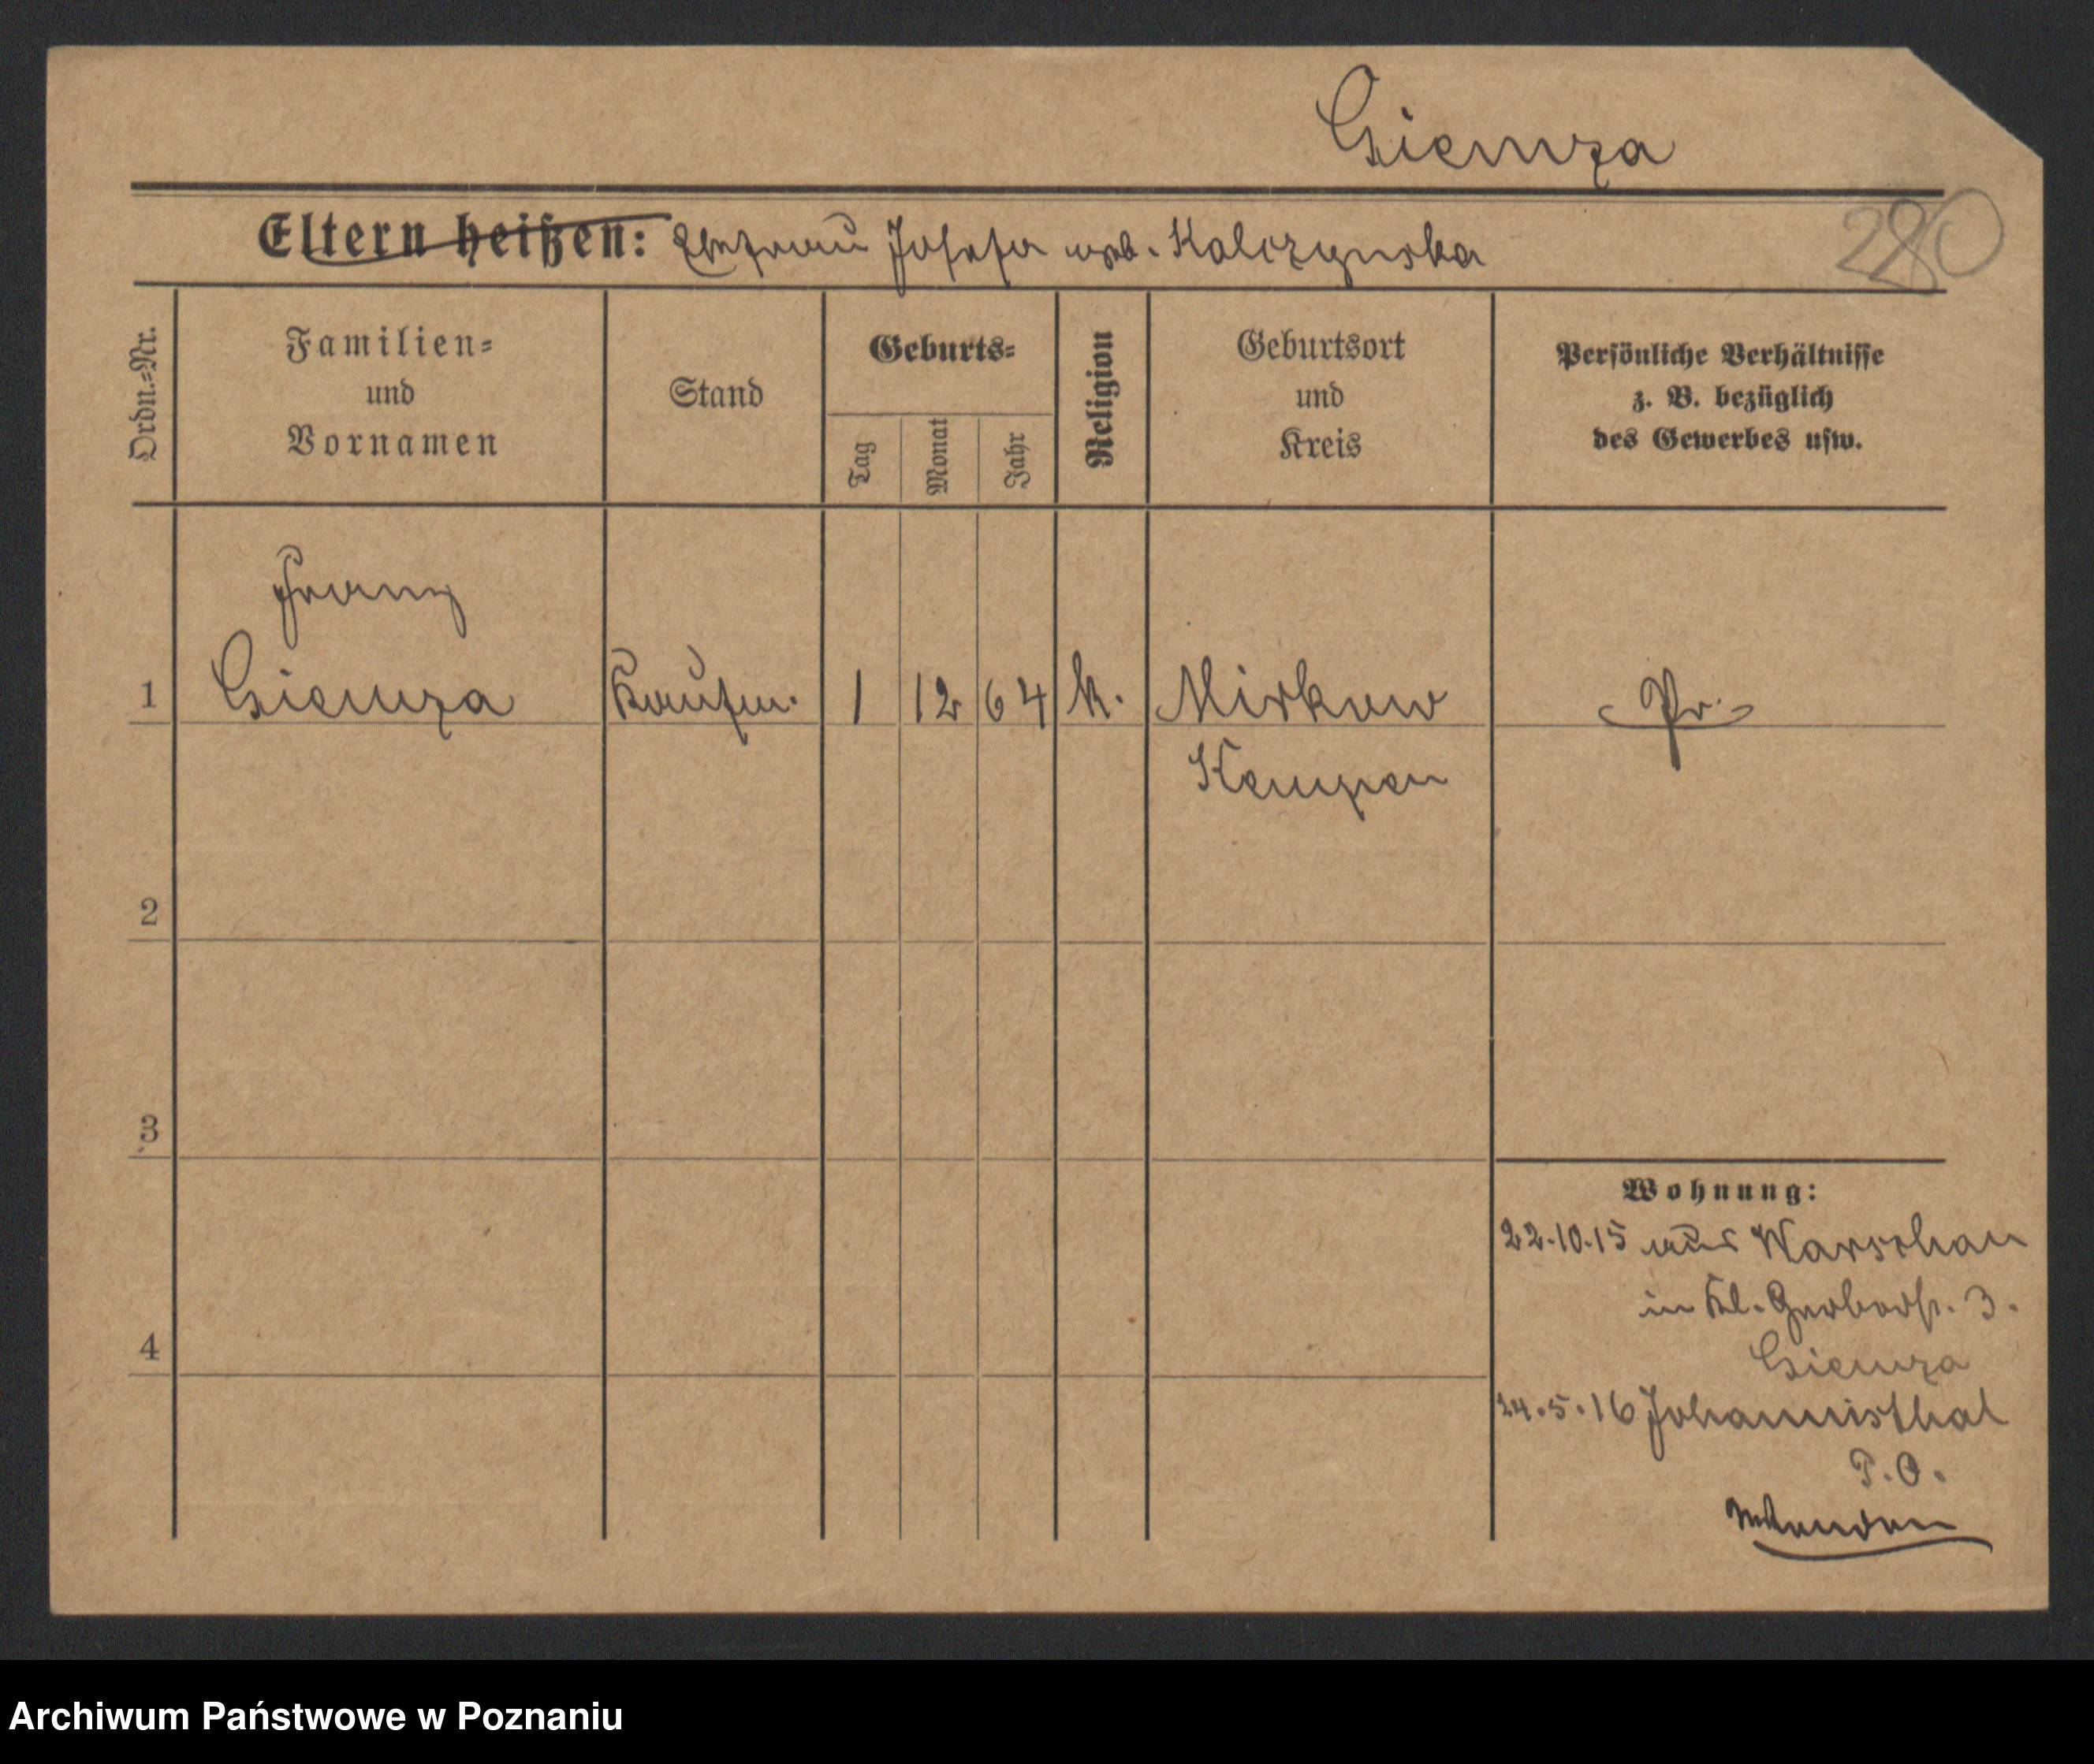 Gienza
280
Eltern heißen: Ehefrau Josefa geb. Kalczynska
Ordn.=Nr.
Familien=
und
Vornamen
Stand
Geburts=
Tag
Monat
Jahr
Religion
Geburtsort
und
Kreis
Persönliche Verhältnisse
z. B. bezüglich
des Gewerbes usw.
Franz
1 Gienza Kaufm. 1 12 64 k. Mirkow Pr.
Kempen
2
3
4
Wohnung:
22.10.15 aus Warschau
in Kl. Gerberstr. 3.
Gienza
24.5.16 Johannisthal
P.O.
Archiwum Państwowe w Poznaniu